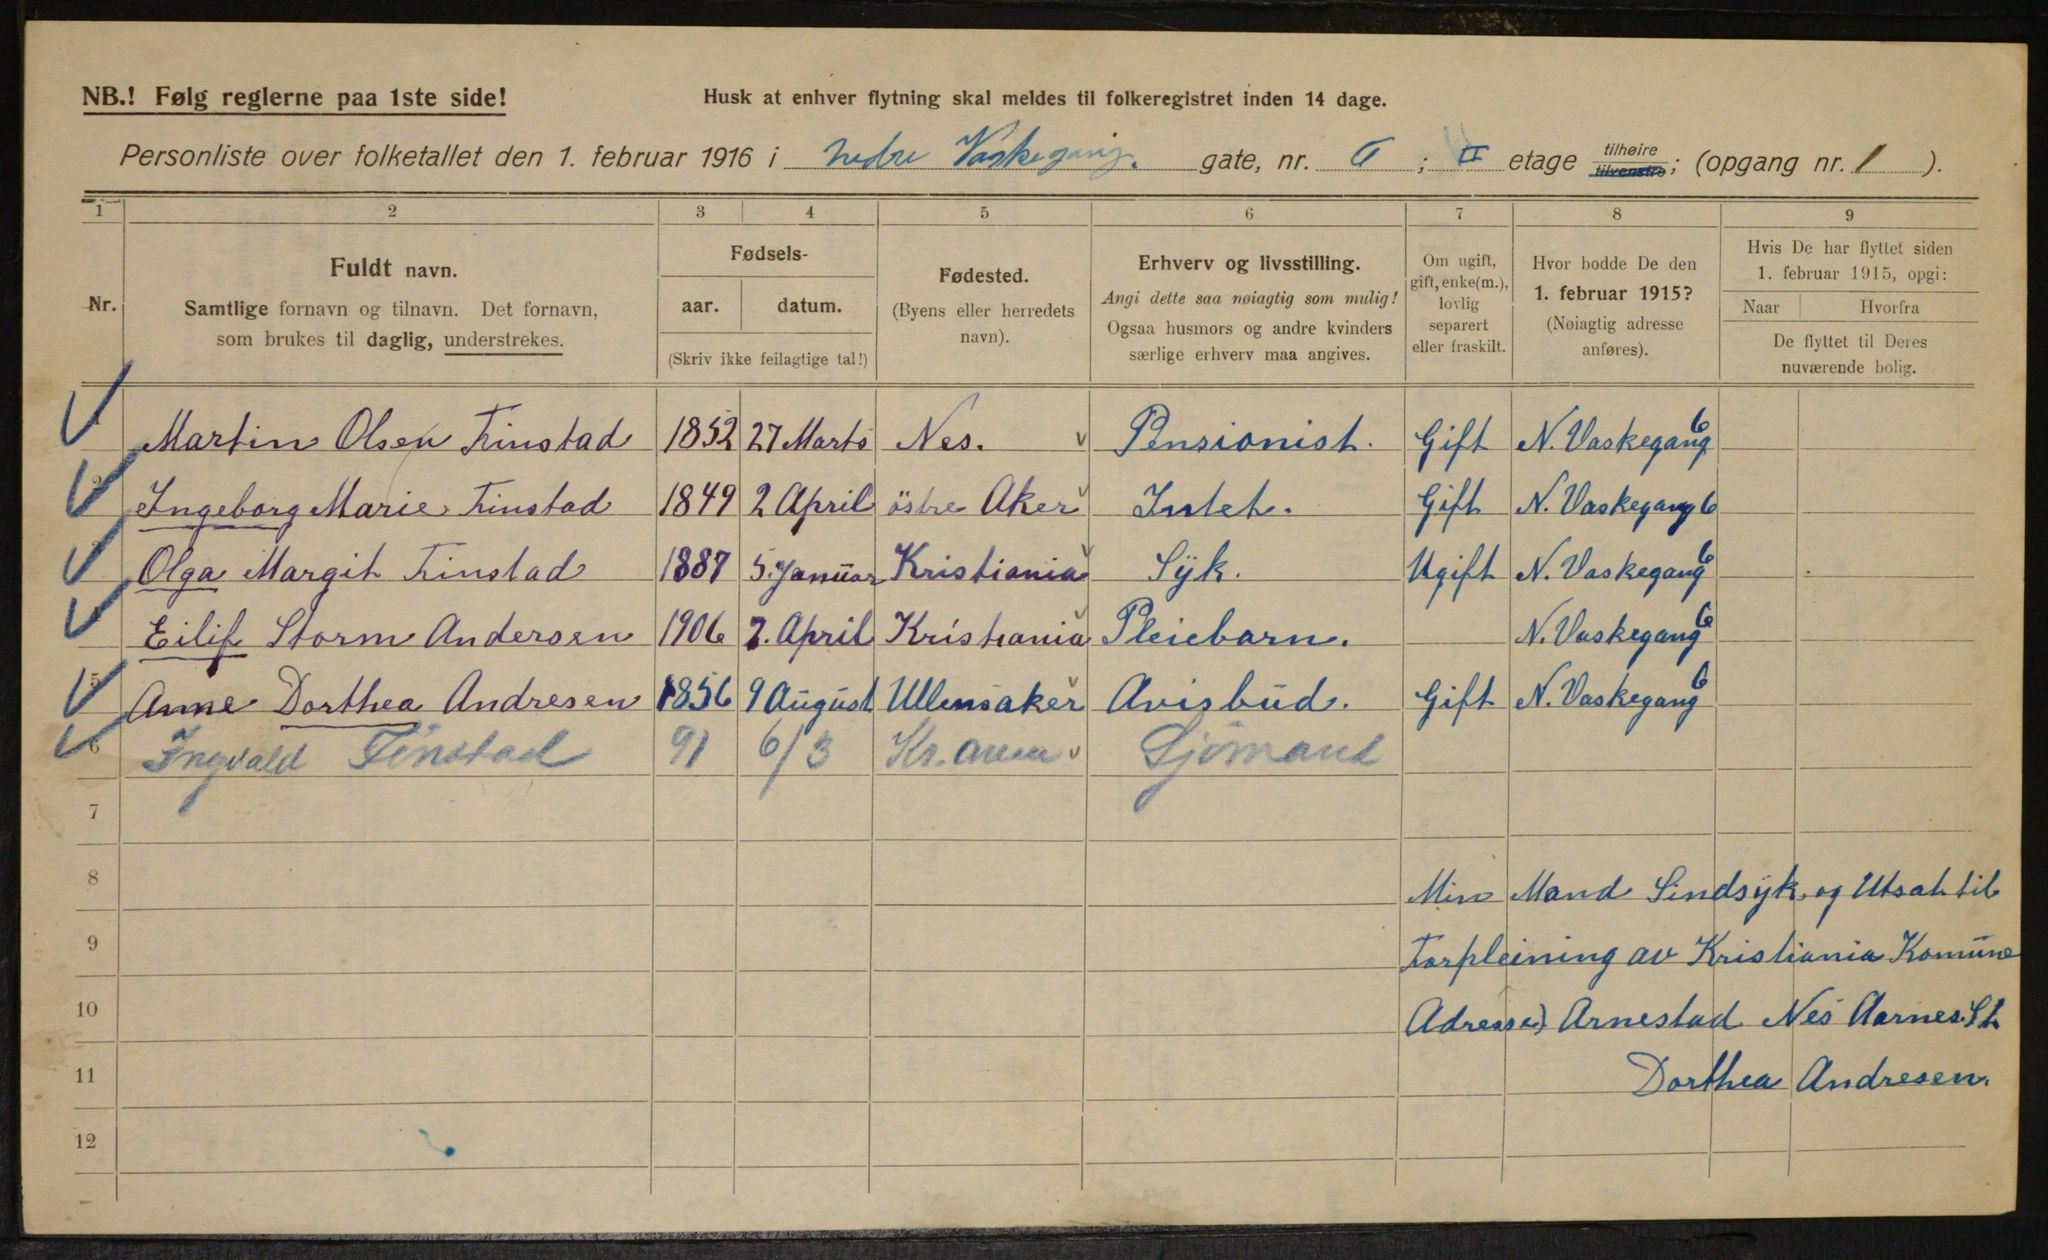 NB.! Følg reglerne paa 1ste side!
Husk at enhver flytning skal meldes til folkeregistret inden 14 dage.
Personliste over folketallet den 1. februar 1916 i Nedre Vaskegang. gate, nr. 6; II etage tilhøire tilvenstre; (opgang nr. 1).
1 2 3 4 5 6 7 8 9
Nr.
Fuldt navn.
Samtlige fornavn og tilnavn. Det fornavn,
som brukes til daglig, understrekes.
Fødsels-
aar. datum.
(Skriv ikke feilagtige tal!)
Fødested.
(Byens eller herredets
navn).
Erhverv og livsstilling.
Angi dette saa nøiagtig som mulig!
Ogsaa husmors og andre kvinders
særlige erhverv maa angives.
Om ugift,
gift, enke(m.),
lovlig
separert
eller fraskilt.
Hvor bodde De den
1. februar 1915?
(Nøiagtig adresse
anføres).
Hvis De har flyttet siden
1. februar 1915, opgi:
Naar Hvorfra
De flyttet til Deres
nuværende bolig.
Martin Olsen Finstad 1852 27 Marts Nes. Pensionist. Gift N. Vaskegang 6
2 Ingeborg Marie Finstad 1849 2 April östre Aker Intet. Gift N. Vaskegang 6
Olga Margit Finstad 1887 5. Januar Kristiania Syk. Ugift N. Vaskegang 6
Eilif Storm Andersen 1906 7. April Kristiania Pleiebarn. N. Vaskegang 6
5 Anne Dorthea Andresen 1856 9 August Ullensaker Avisbud. Gift N. Vaskegang 6
6 Ingvald Finstad 91 6/3 Kr.ania Sjömand
7
8 Min Mand Sindsyk og Utsat til
9 Forpleining av Kristiania Komune
10 Adresse) Arnestad Nes Aarnes. St
11 Dorthea Andresen.
12